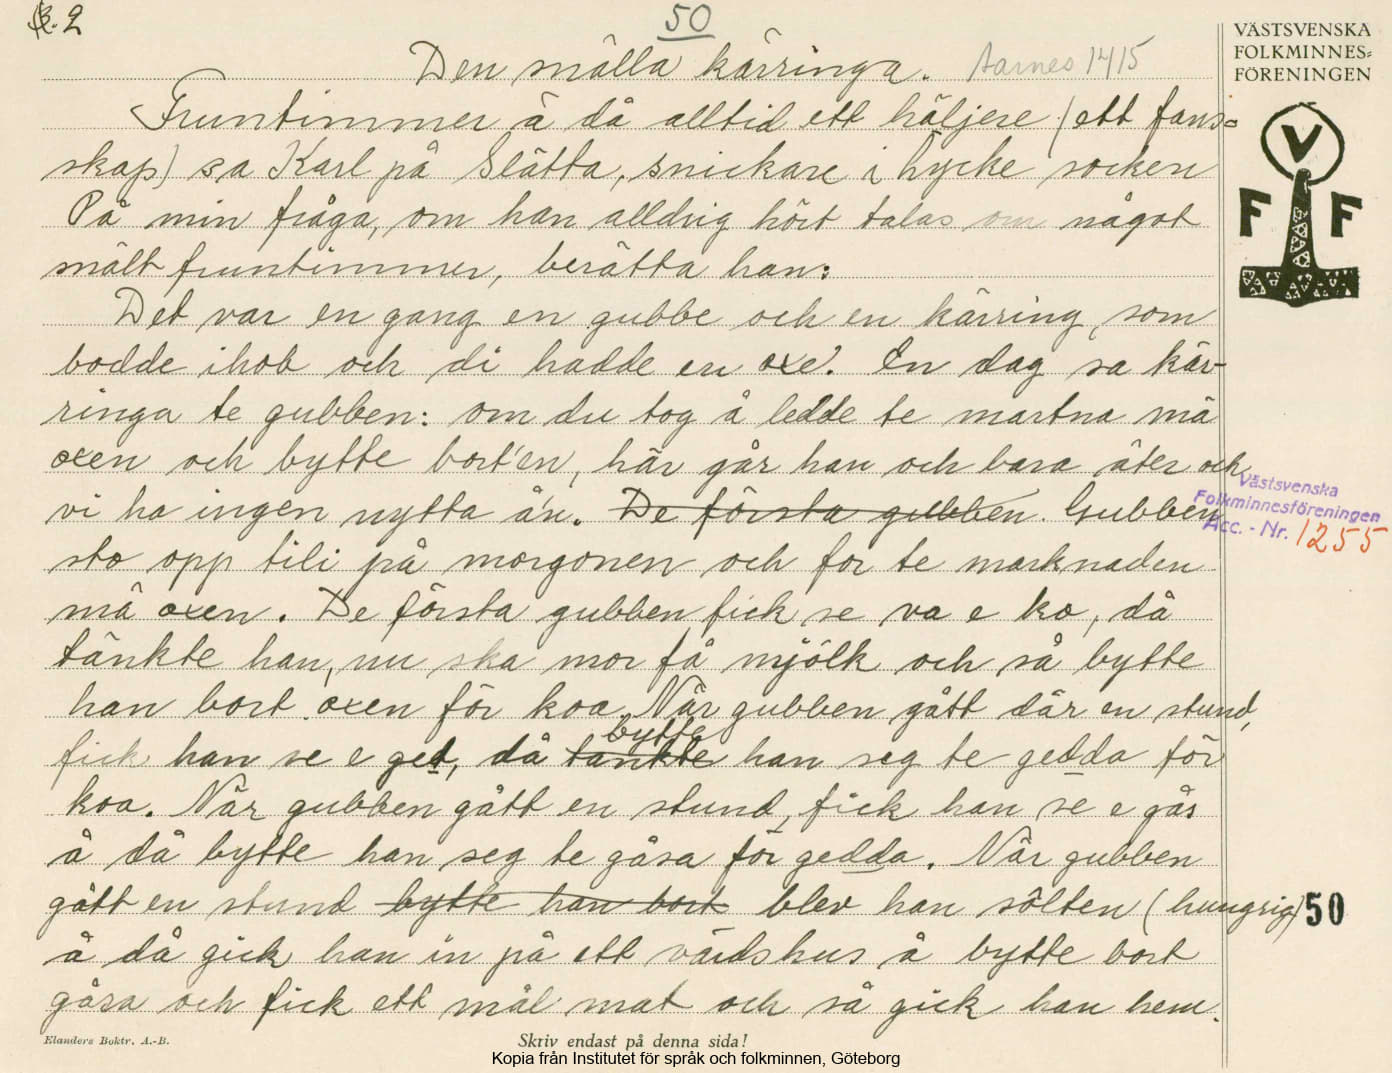 B. 2
50
Den mälla kärringa. Aarnes 1415
VÄSTSVENSKA
FOLKMINNES-
FÖRENINGEN
V
F F
Fruntimmer ä då alltid ett häljere (ett fans-
skap) sa Karl på Slätta, snickare i Hycke socken
På min fråga, om han alldrig hört talas om något
mält fruntimmer, berätta han:
Det var en gang en gubbe och en kärring, som
bodde ihob och di hadde en oxe. En dag sa kär-
ringa te gubben: om du tog å ledde te martna mä
oxen och bytte bort'en, här går han och bara äter och
vi ha ingen nytta å'n. De första gubben. Gubben
sto opp tili på morgonen och for te marknaden
mä oxen. De första gubben fick se va e ko, då
tänkte han, nu ska mor få mjölk och så bytte
han bort oxen för koa. När gubben gått där en stund,
bytte
fick han se e ged, då tänkte han seg te gedda för
koa. När gubben gått en stund, fick han se e gås
å då bytte han seg te gåsa för gedda. När gubben
gått en stund bytte han bort blev han sölten (hungrig)
å då gick han in på ett värdshus å bytte bort
gåsa och fick ett mål mat och så gick han hem.
Västsvenska
Folkminnesföreningen
Acc. - Nr. 1255
50
Elanders Boktr. A.-B.
Skriv endast på denna sida!
Kopia från Institutet för språk och folkminnen, Göteborg